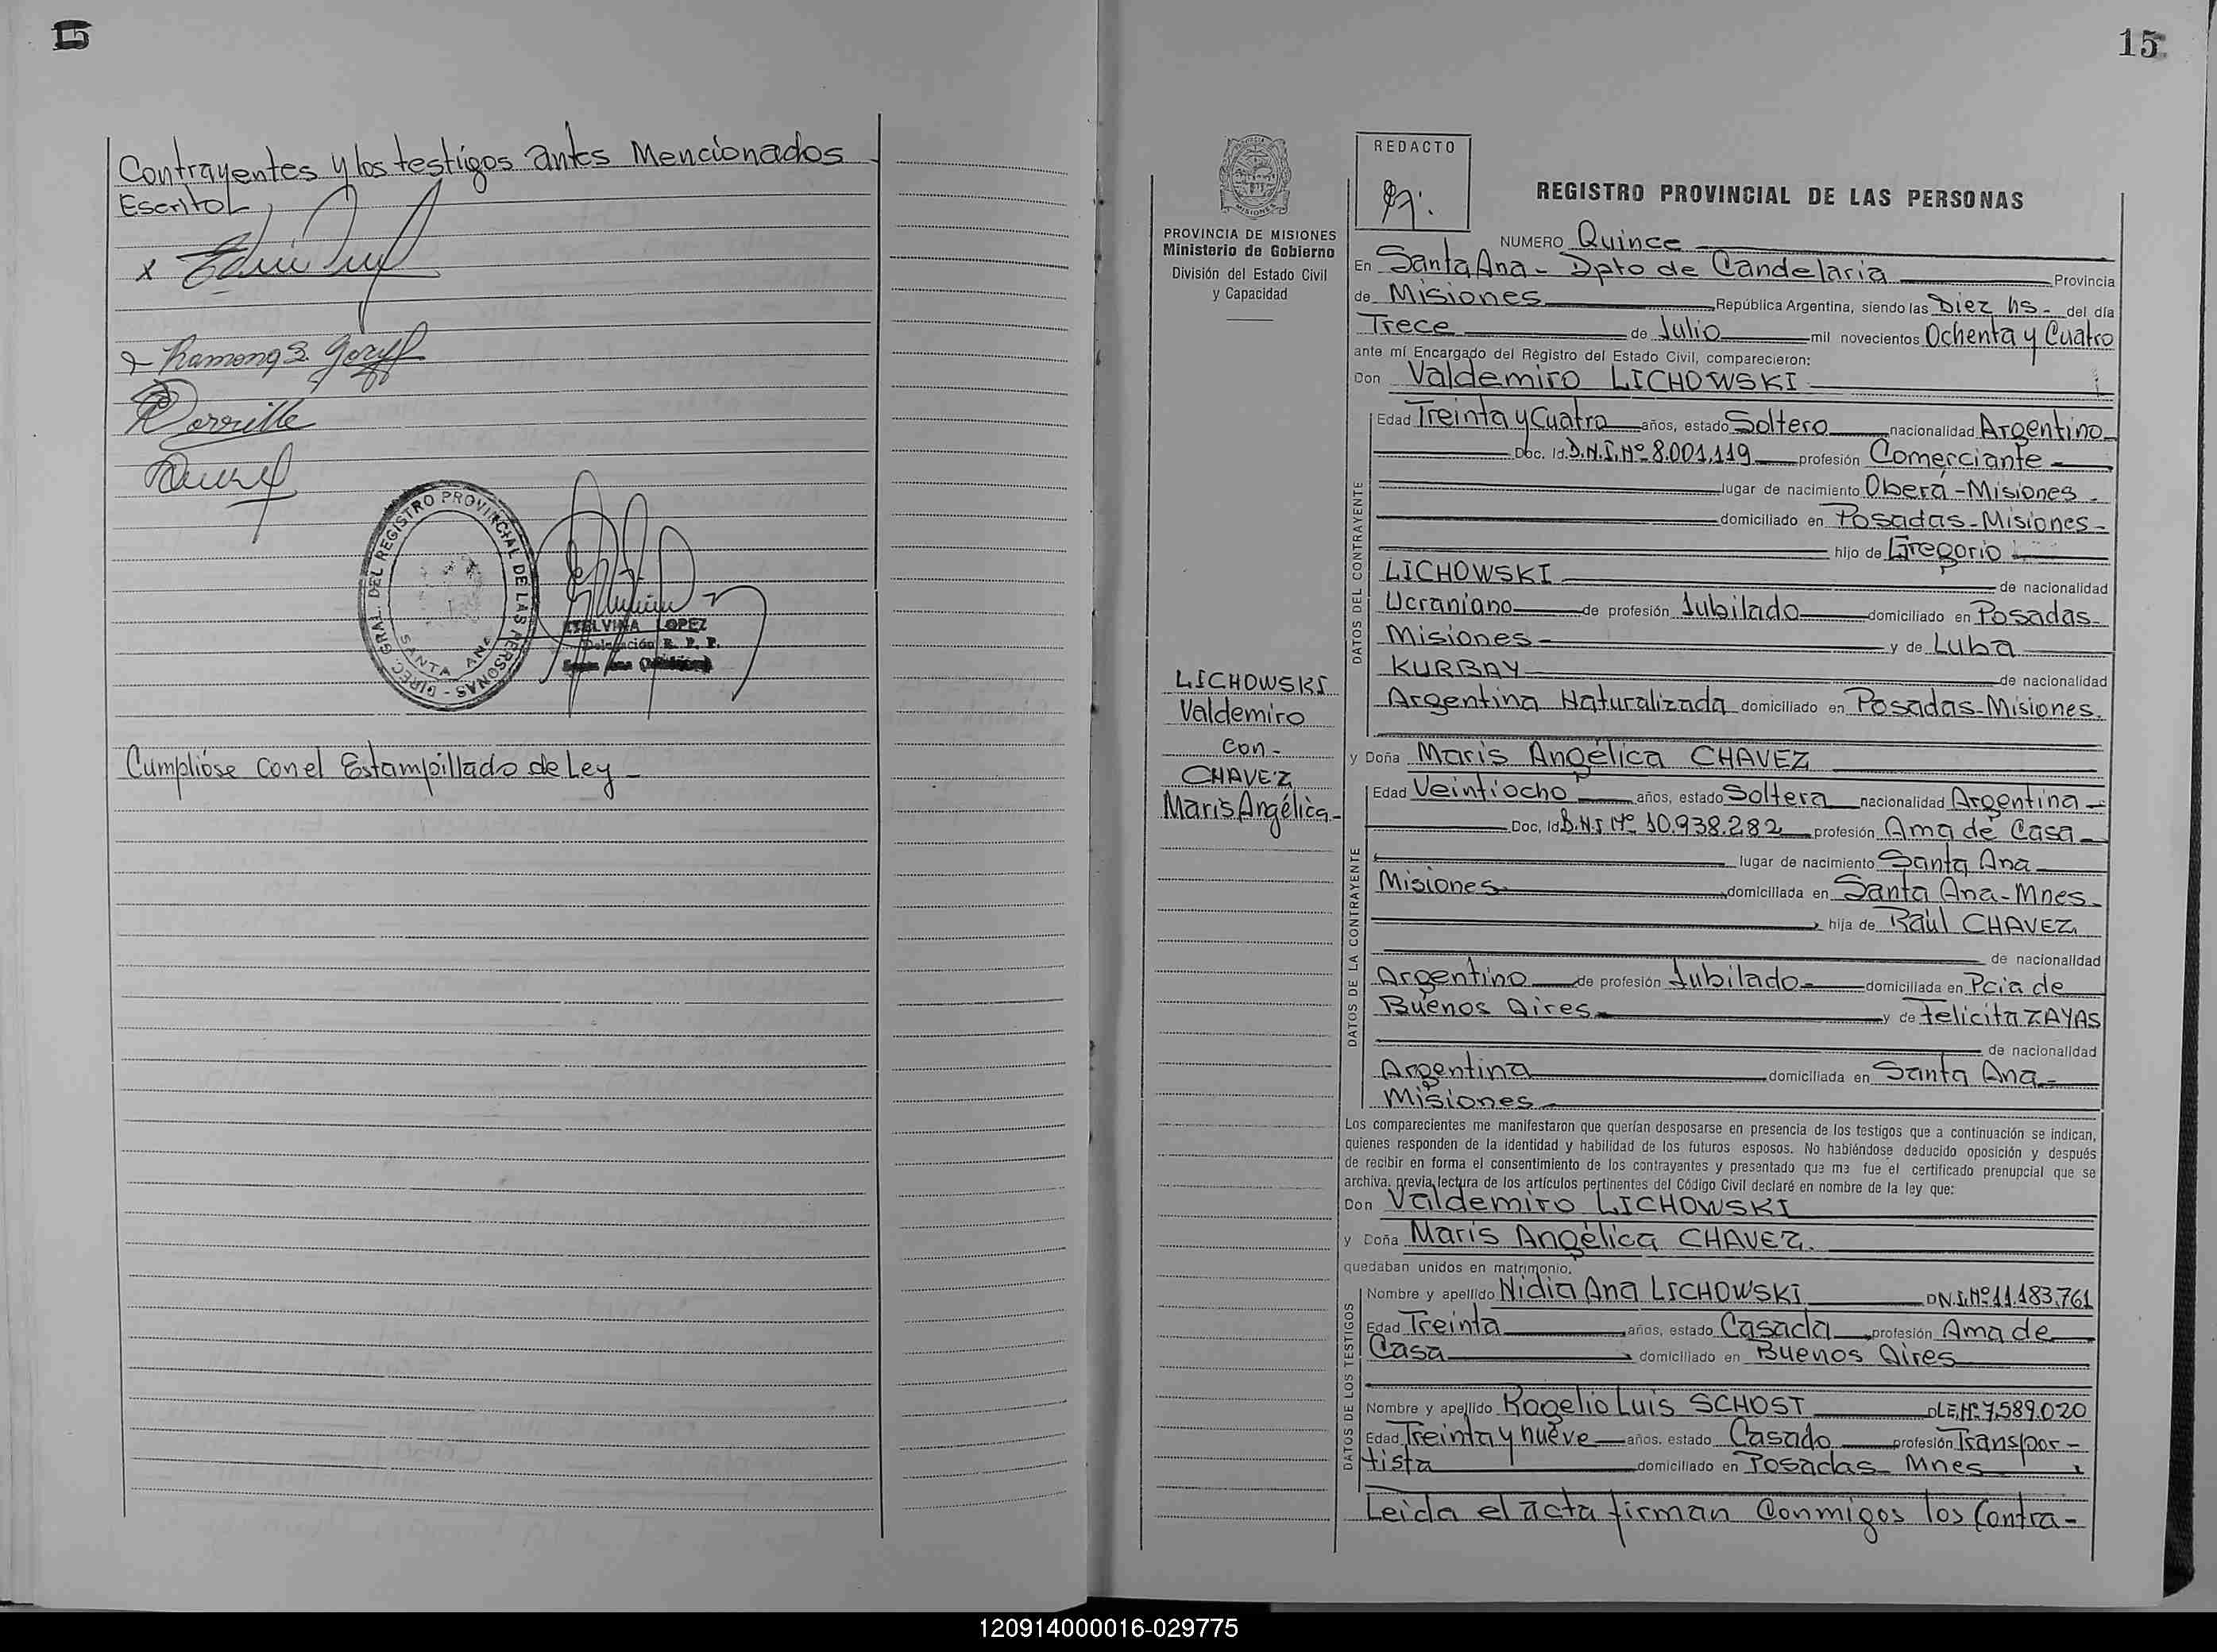 15
Contrayentes y los testigos antes Mencionados
x
x Ramona
DIREC. GRAL. DEL REGISTRO PROVINCIAL DE LAS PERSONAS - SANTA ANA
ETELVINA LOPEZ
Delegación R. P. P.
Santa Ana (Misiones)
Cumplióse con el Estampillado de Ley -
15
PROVINCIA DE MISIONES
Ministerio de Gobierno
División del Estado Civil
y Capacidad
LICHOWSKI
Valdemiro
con -
CHAVEZ
Maris Angélica -
REDACTO
REGISTRO PROVINCIAL DE LAS PERSONAS
NUMERO Quince
En Santa Ana - Dpto de Candelaria Provincia
de Misiones República Argentina, siendo las Diez hs - del día
Trece de Julio mil novecientos Ochenta y Cuatro
ante mí Encargado del Registro del Estado Civil, comparecieron:
Don Valdemiro LICHOWSKI
DATOS DEL CONTRAYENTE
Edad Treinta y Cuatro años, estado Soltero nacionalidad Argentino
Doc. Id. D.N.I. Nº 8.001.119 profesión Comerciante -
lugar de nacimiento Oberá - Misiones -
domiciliado en Posadas - Misiones -
hijo de Gregorio
LICHOWSKI de nacionalidad
Ucraniano de profesión Jubilado domiciliado en Posadas
Misiones y de Luba
KURBAY de nacionalidad
Argentina Naturalizada domiciliado en Posadas - Misiones.
y Doña Maris Angélica CHAVEZ
DATOS DE LA CONTRAYENTE
Edad Veintiocho años, estado Soltera nacionalidad Argentina -
Doc. Id D.N.I Nº 10.938.282 profesión Ama de Casa -
lugar de nacimiento Santa Ana
Misiones domiciliada en Santa Ana - Mnes.
hija de Raúl CHAVEZ
de nacionalidad
Argentino de profesión Jubilado - domiciliada en Pcia de
Buenos Aires y de Felicita ZAYAS
de nacionalidad
Argentina domiciliada en Santa Ana -
Misiones
Los comparecientes me manifestaron que querían desposarse en presencia de los testigos que a continuación se indican,
quienes responden de la identidad y habilidad de los futuros esposos. No habiéndose deducido oposición y después
de recibir en forma el consentimiento de los contrayentes y presentado que me fue el certificado prenupcial que se
archiva, previa lectura de los artículos pertinentes del Código Civil declaré en nombre de la ley que:
Don Valdemiro LICHOWSKI
y Doña Maris Angélica CHAVEZ.
quedaban unidos en matrimonio.
DATOS DE LOS TESTIGOS
Nombre y apellido Nidia Ana LICHOWSKI DN.I.Nº 11.183.761
Edad Treinta años, estado Casada profesión Ama de
Casa domiciliado en Buenos Aires
Nombre y apellido Rogelio Luis SCHOST DLE.Nº 7.589.020
Edad Treinta y nueve años. estado Casado profesión Transpor -
tista domiciliado en Posadas - Mnes
Leida el acta firman Conmigos los Contra -
120914000016-029775